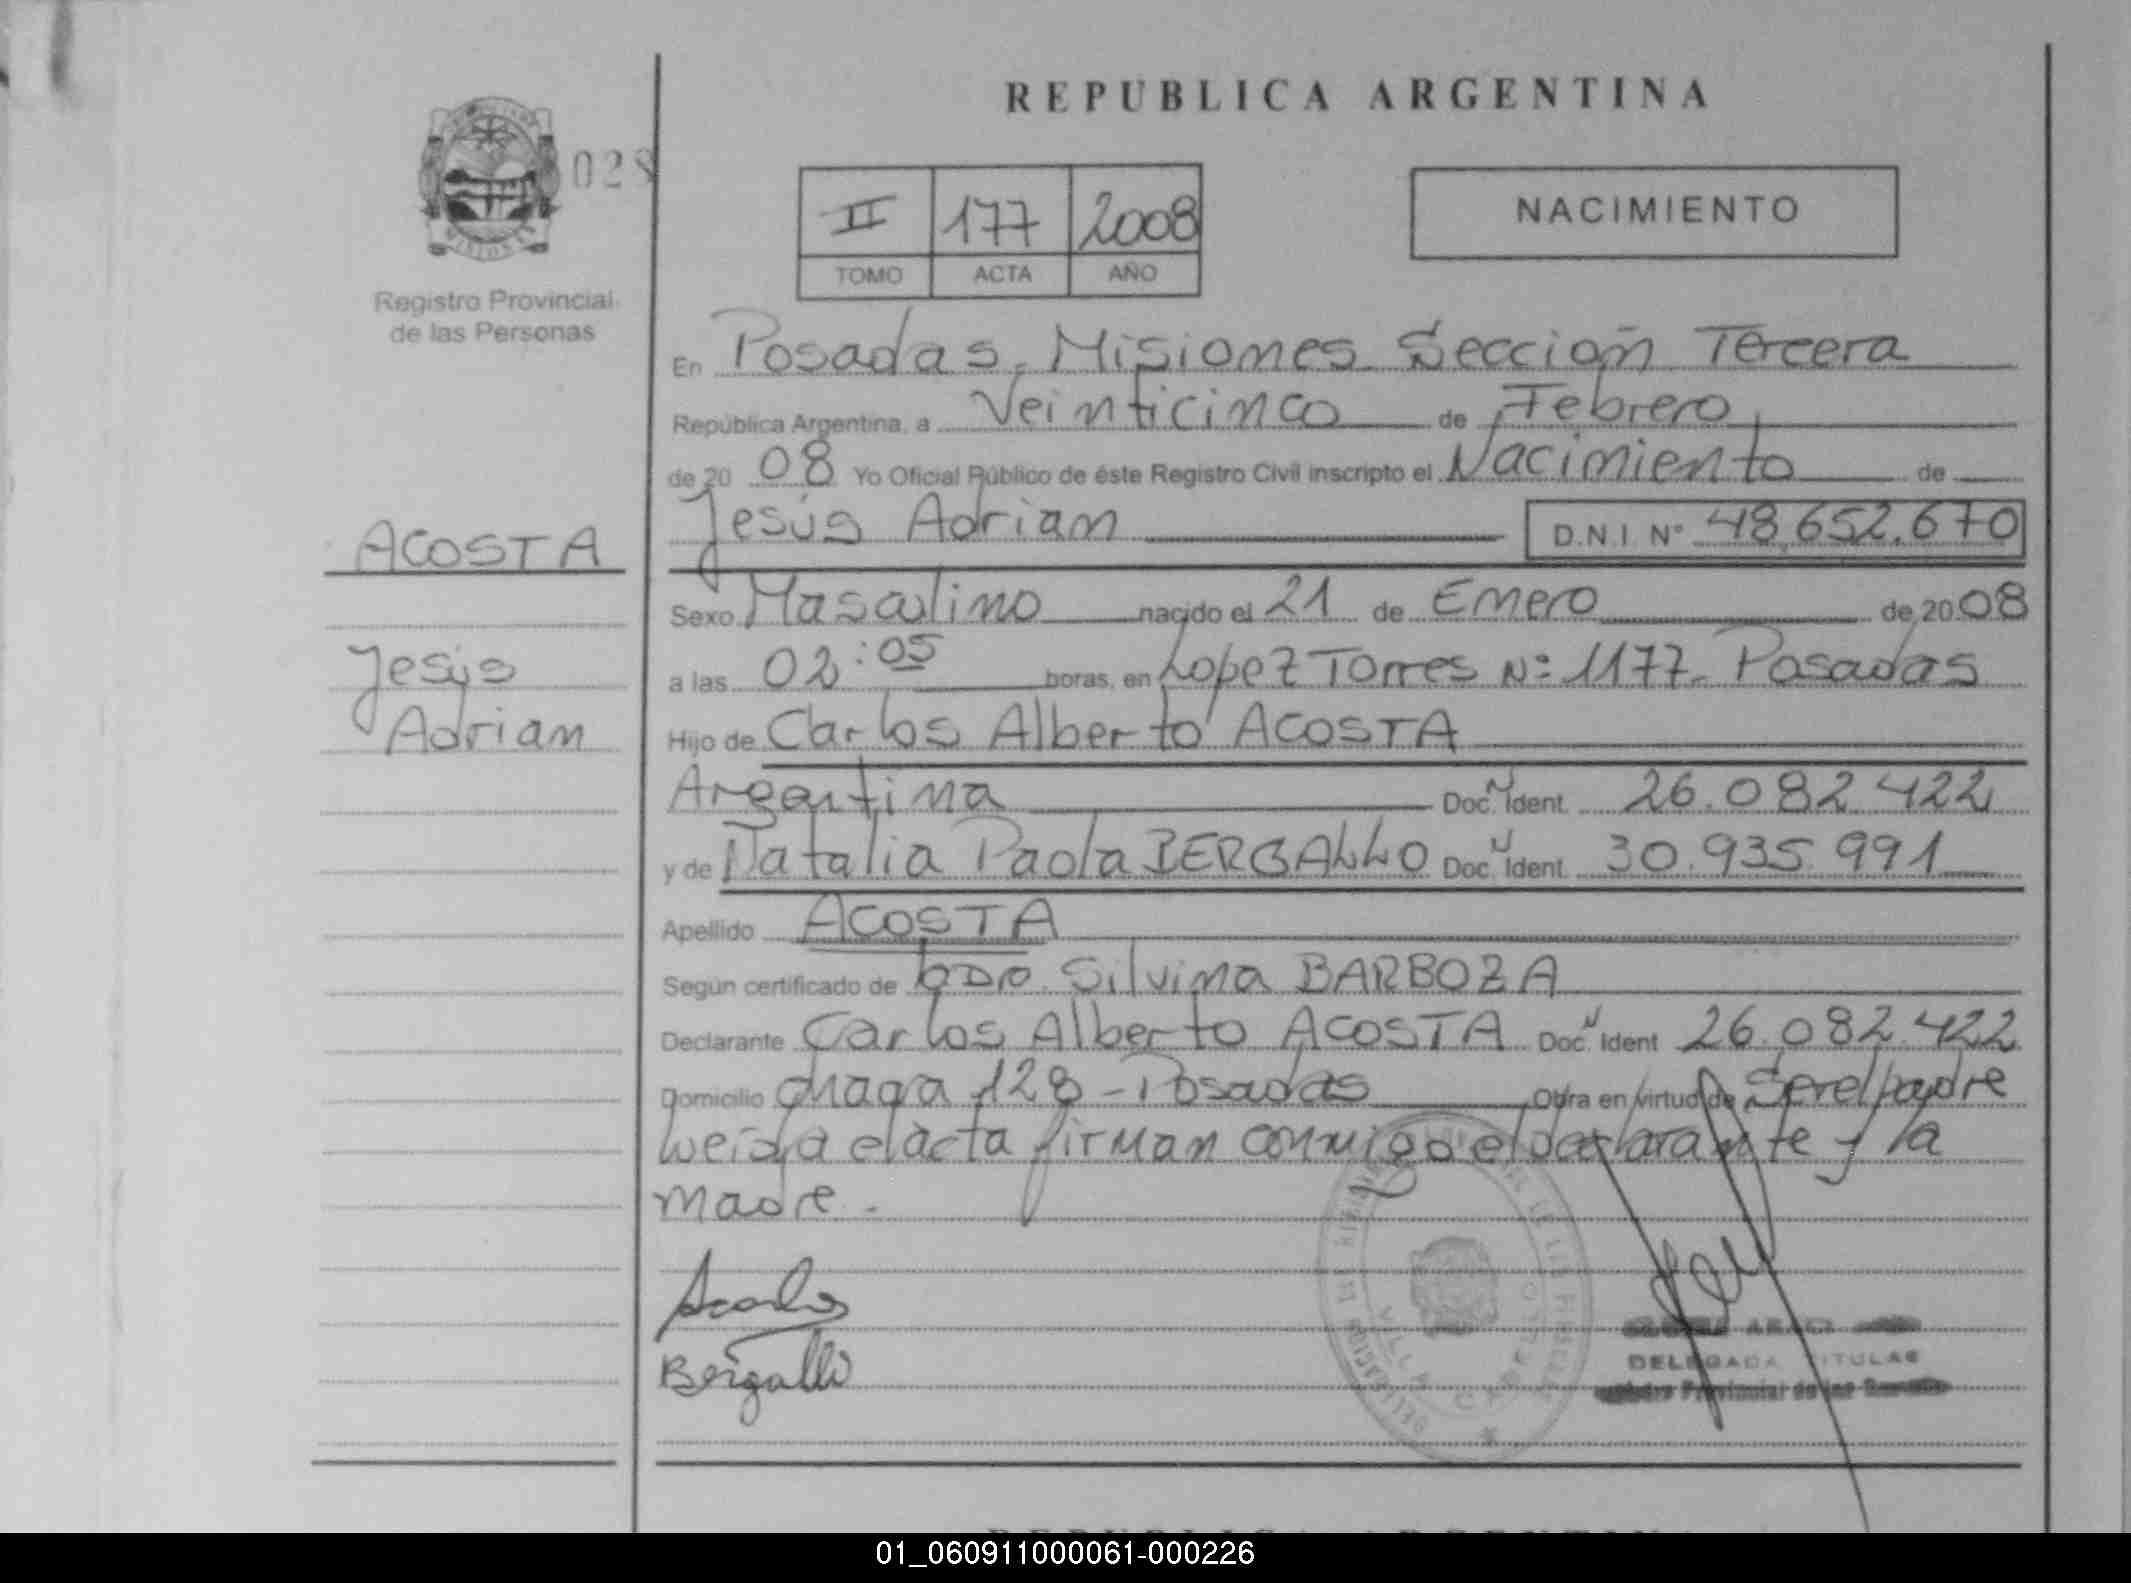 REPUBLICA ARGENTINA
028
II 177 2008
TOMO ACTA AÑO
NACIMIENTO
Registro Provincial
de las Personas
En Posadas, Misiones Sección Tercera
República Argentina, a Veinticinco de Febrero
de 2008 Yo Oficial Público de éste Registro Civil inscripto el Nacimiento de
Jesús Adrian D.N.I. Nº 48.652.670
ACOSTA
Jesús
Adrian
Sexo Masculino nacido el 21 de Enero de 2008
a las 02:05 horas, en Lopez Torres Nº 1177- Posadas
Hijo de Carlos Alberto ACOSTA
Argentina Doc. Ident. 26.082.422
y de Natalia Paola BERGALLO Doc. Ident. 30.935.991
Apellido ACOSTA
Según certificado de Silvina BARBOZA
Declarante Carlos Alberto ACOSTA Doc. Ident 26.082.422
Domicilio chaga 128 - Posadas Obra en virtud de Ser el padre
Leida el acta firman conmigo el declarante y la
madre.-
Acosta
Bergallo
VILLA CABELLO
DELEGADA TITULAR
Provincial de las
01_060911000061-000226